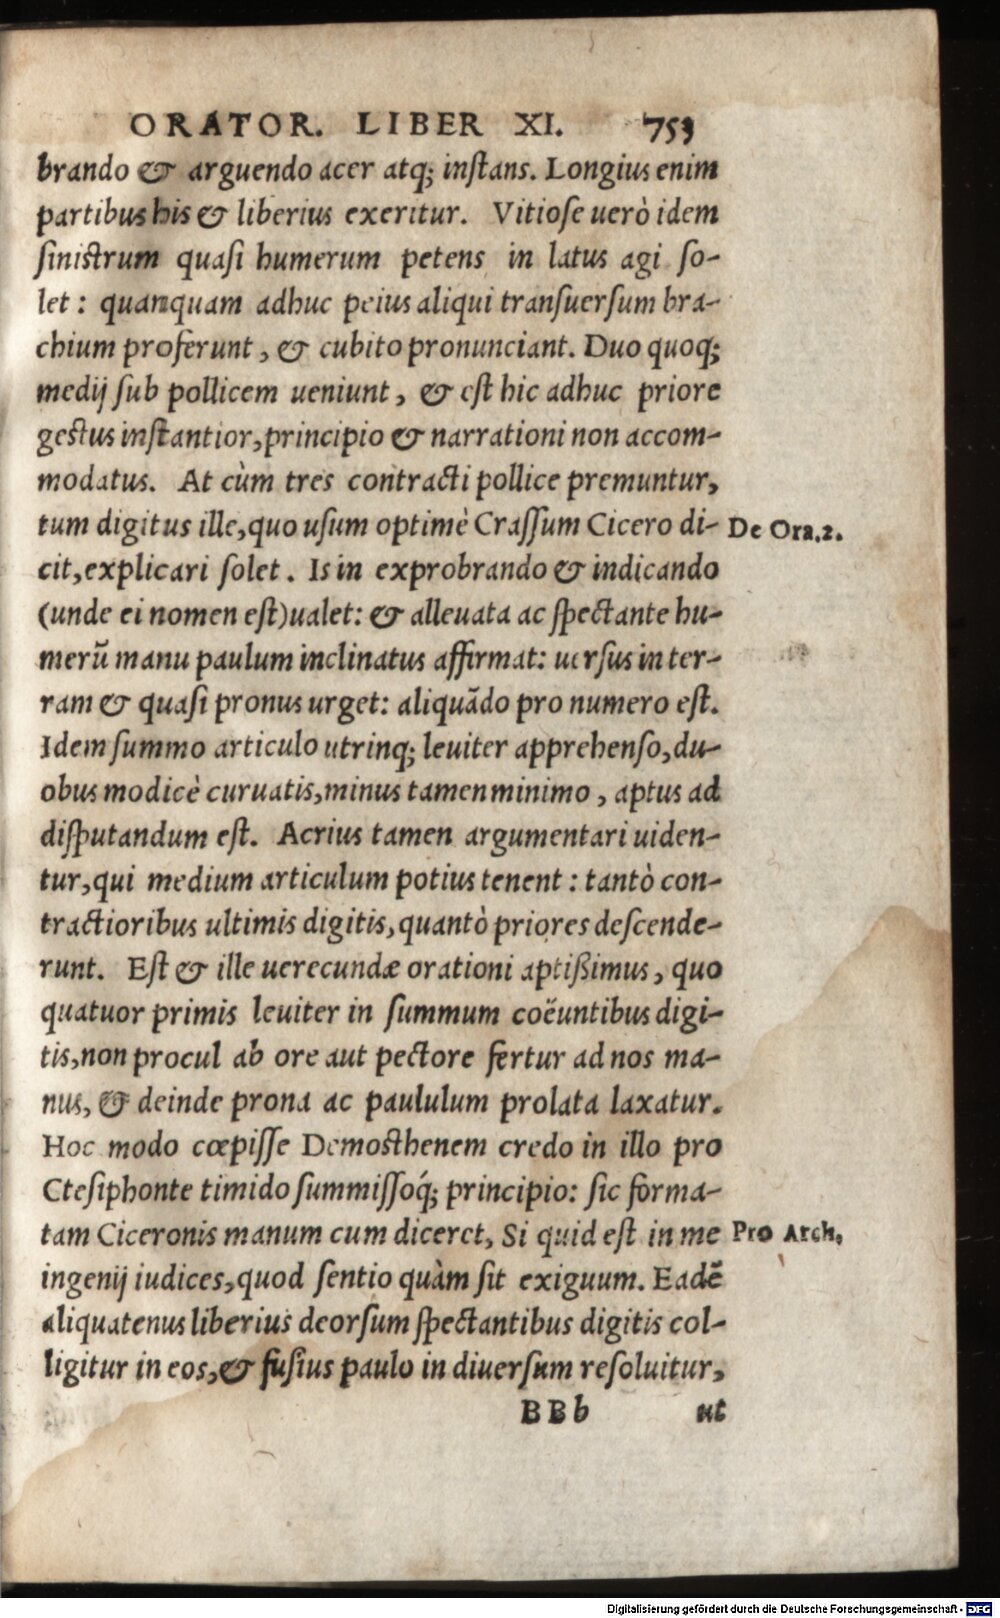 ORATOR. LIBER XI. 753
brando & arguendo acer atq; inſtans. Longius enim
partibus his & liberius exeritur. Vitioſe uerò idem
ſiniſtrum quaſi humerum petens in latus agi ſo-
let : quanquam adhuc peius aliqui tranſuerſum bra-
chium proferunt, & cubito pronunciant. Duo quoq;
medij ſub pollicem ueniunt, & eſt hic adhuc priore
geſtus inſtantior, principio & narrationi non accom-
modatus. At cùm tres contracti pollice premuntur,
tum digitus ille, quo uſum optimè Craſſum Cicero di-
De Ora.2.
cit, explicari ſolet. Is in exprobrando & indicando
(unde ei nomen eſt) ualet: & alleuata ac ſpectante hu-
merū manu paulum inclinatus affirmat: uerſus in ter-
ram & quaſi pronus urget: aliquādo pro numero eſt.
Idem ſummo articulo utrinq; leuiter apprehenſo, du-
obus modicè curuatis, minus tamen minimo, aptus ad
diſputandum eſt. Acrius tamen argumentari uiden-
tur, qui medium articulum potius tenent : tantò con-
tractioribus ultimis digitis, quantò priores deſcende-
runt. Eſt & ille uerecundæ orationi aptißimus, quo
quatuor primis leuiter in ſummum coëuntibus digi-
tis, non procul ab ore aut pectore fertur ad nos ma-
nus, & deinde prona ac paululum prolata laxatur.
Hoc modo cœpiſſe Demoſthenem credo in illo pro
Cteſiphonte timido ſummiſſoq́; principio: ſic forma-
tam Ciceronis manum cum diceret, Si quid eſt in me
Pro Arch,
ingenij iudices, quod ſentio quàm ſit exiguum. Eadē
aliquatenus liberius deorſum ſpectantibus digitis col-
ligitur in eos, & fuſius paulo in diuerſum reſoluitur,
BBb ut
Digitalisierung gefördert durch die Deutsche Forschungsgemeinschaft - DFG